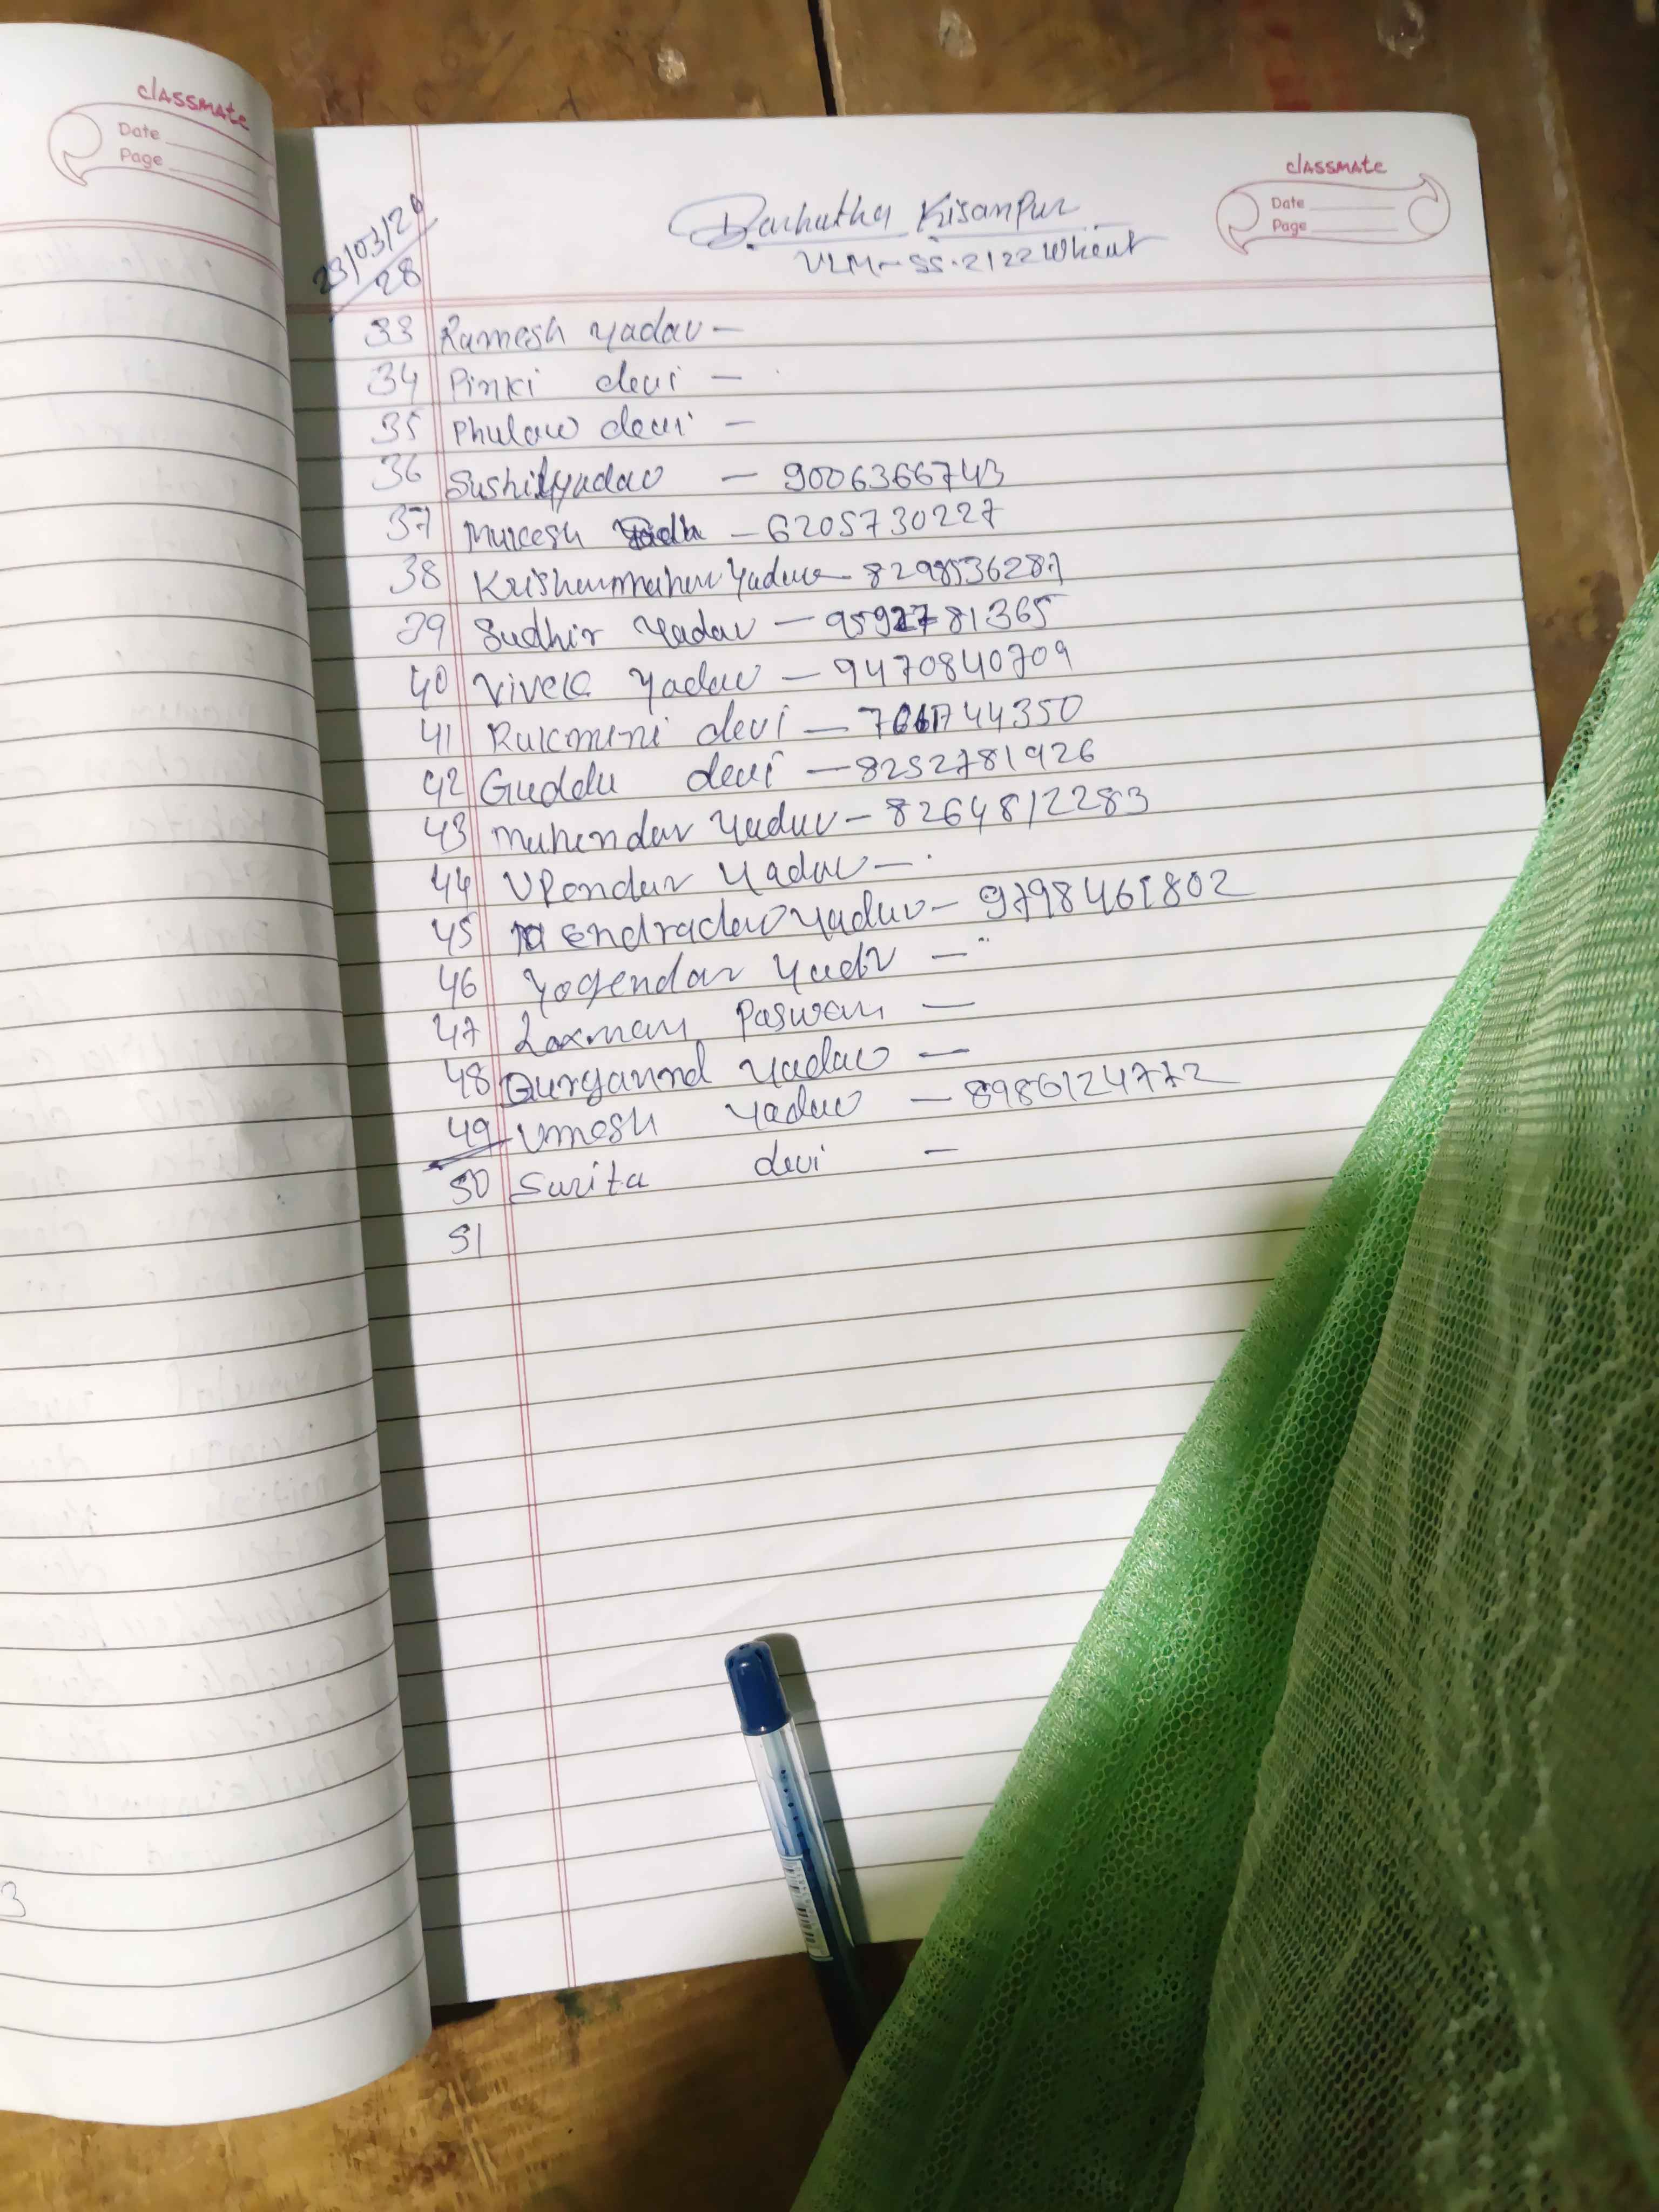 classmate
Date
Page
classmate
Date
Page
23/03/26
28
Barhutha Kisanpur
VLM-SS-2122 Wheat
33 Ramesh Yadav -
34 Pinki devi -
35 Phulaw devi -
36 Sushil yadav - 9006366743
37 Mukesh - 6205730227
38 Yadav - 8298536287
39 Sudhir Yadav - 781365
40 Vivek Yadav - 9470840709
41 Rukmini devi - 744350
42 Guddu devi - 8252781926
43 Mahendar Yadav - 8264812283
44 Upendar Yadav -
45 endradev Yadav - 9798461802
46 Yogendar Yadv -
47 Laxman Paswan -
48 Yadav -
49 Umesh Yadav - 8986124772
50 Surita devi -
51
3